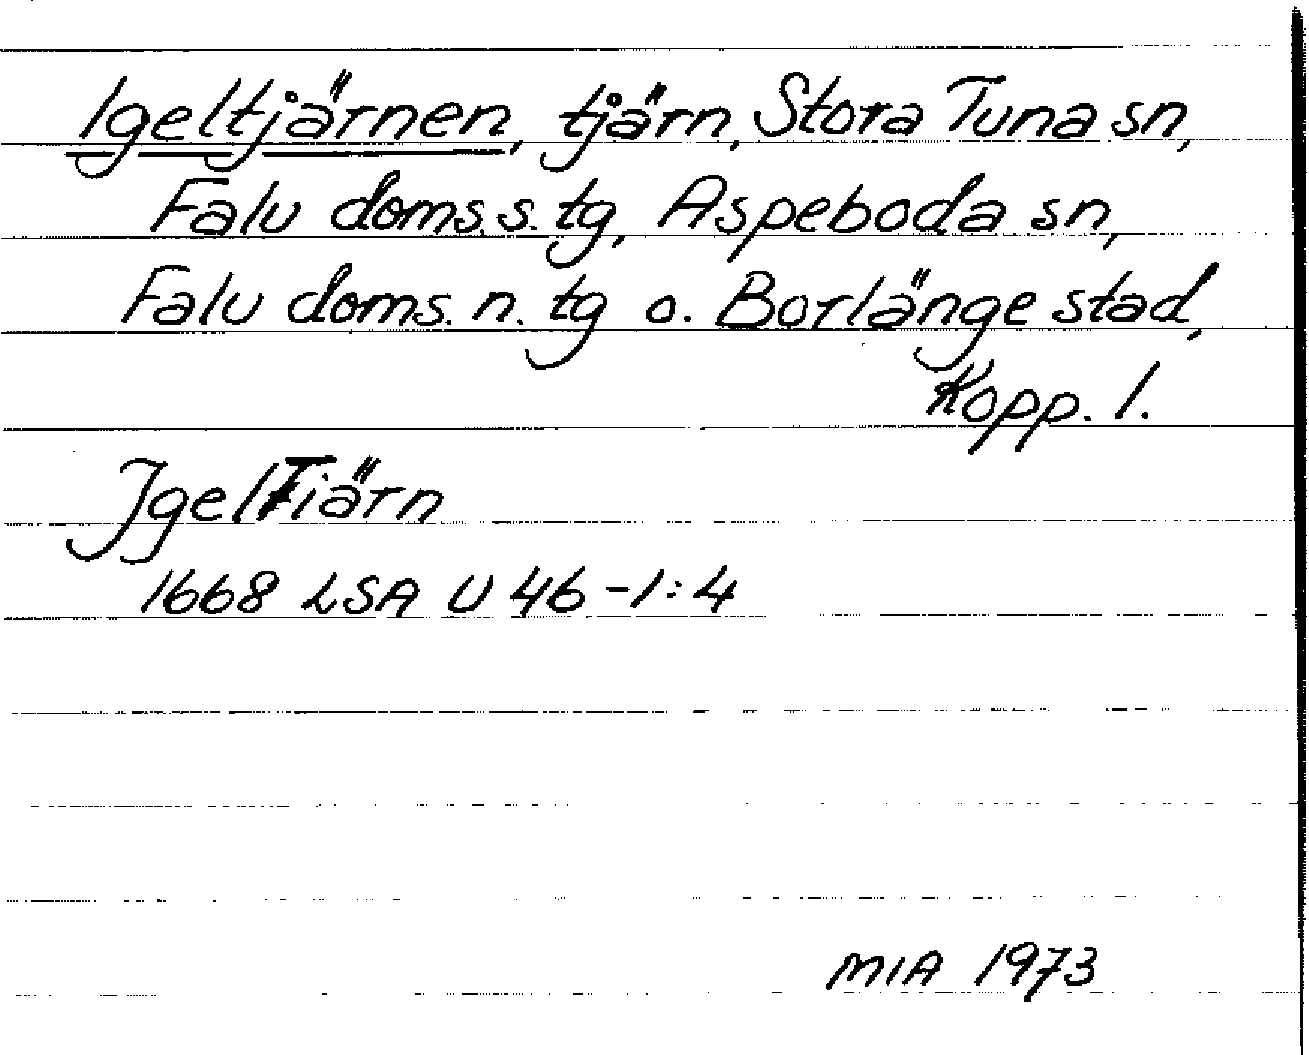 Igeltjärnen, tjärn, Stora Tuna sn,
Falu doms. s. tg, Aspeboda sn,
Falu doms. n. tg o. Borlänge stad,
Kopp. l.
JgelTiärn
1668 LSA U 46-1:4
MIA 1973